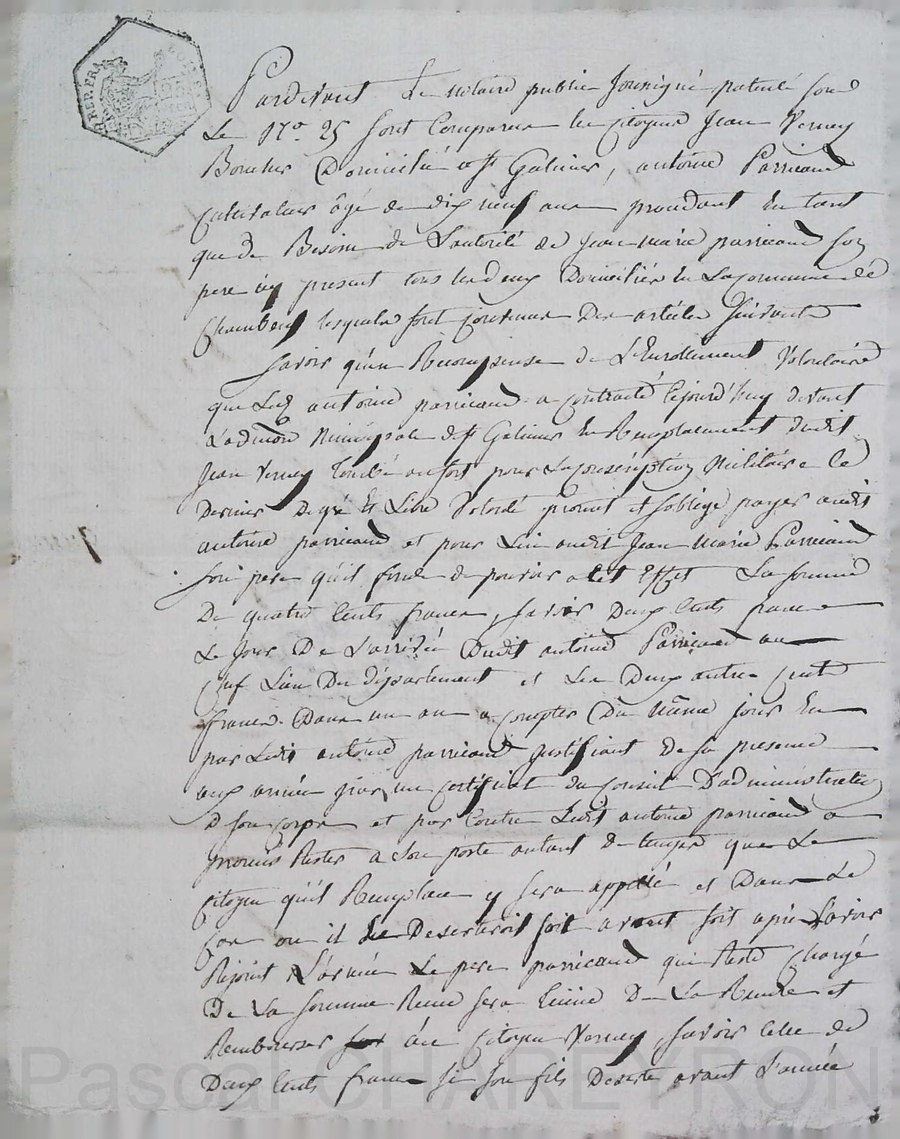 Pardevant Le notaire public soussigné patenté sous
Le N.º 25 sont Comparus les Citoyens Jean Verney
Domicilié a St Galmier, antoine Parricaud
Cultivateur âgé de dix neuf ans procedant En tant
que de Besoin de L'autorité de Jean Marie parricaud son
pere icy present tous les deux Domiciliés En La Commune de
Chambeuf lesquels sont Convenus Des articles Suivants
Savoir qu'en Recompense de L'Enrollement Volontaire
que Led antoine parricaud a Contracté Cejourd'huy devant
L'adm.on Municipale de St Galmier En Remplacement dudit
Jean Verney tombé au sort pour La Conscription Militaire Ce
Dernier De gré Et Libre Volonté promet et s'oblige payer audit
antoine parricaud et pour Lui audit Jean Marie Parricaud
Son pere qu'il fonde de pouvoir a Cet Effet La somme
De quatre Cents francs, savoir Deux Cents francs
Le Jour De L'arrivée Dudit antoine Parricaud au
Chef Lieu Du département et Les Deux autres Cents
francs Dans un an a Compter Du Même jour En
par Ledit antoine parricaud justifiant de sa presence
aux armées par un Certificat du Conseil D'administration
D son Corps et par Contre Ledit antoine parricaud a
promis Rester a Son poste autant de temps que Le
Citoyen qu'il Remplace y sera appellé et Dans Le
Cas ou il Deserteroit soit avant soit après avoir
Rejoint L'armée Le pere parricaud qui Reste Chargé
De La Somme Remise sera tenu De La Rendre et
Rembourser au Citoyen Verney, savoir Celle de
Deux Cents francs si son fils Deserte avant L'année
REP. FRA
Pascal CHAREYRON